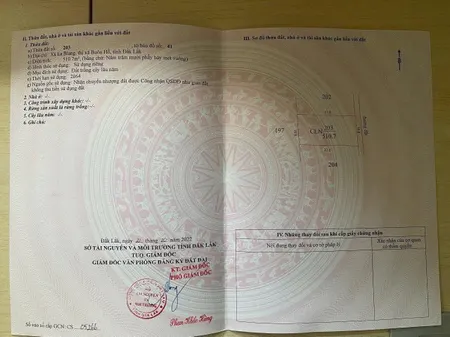 II. Thửa đất, nhà ở và tài sản khác gắn liền với đất
1. Thửa đất:
a) Thửa đất số: 203 , tờ bản đồ số: 41
b) Địa chỉ: Xã Ea Blang, thị xã Buôn Hồ, tỉnh Đắk Lắk
c) Diện tích: 518.7m², (bằng chữ: Năm trăm mười phẩy bảy mét vuông)
d) Hình thức sử dụng: Sử dụng riêng
đ) Mục đích sử dụng: Đất trồng cây lâu năm
e) Thời hạn sử dụng: 2064
g) Nguồn gốc sử dụng: Nhận chuyển nhượng đất được Công nhận QSDĐ như giao đất
không thu tiền sử dụng đất
2. Nhà ở: -/-
3. Công trình xây dựng khác: -/-
4. Rừng sản xuất là rừng trồng: -/-
5. Cây lâu năm: -/-
6. Ghi chú:
Đắk Lắk, ngày tháng năm 2022
SỞ TÀI NGUYÊN VÀ MÔI TRƯỜNG TỈNH ĐẮK LẮK
TUQ. GIÁM ĐỐC
GIÁM ĐỐC VĂN PHÒNG ĐĂNG KÝ ĐẤT ĐAI
KT. GIÁM ĐỐC
PHÓ GIÁM ĐỐC
Số vào sổ cấp GCN: CS
III. Sơ đồ thửa đất, nhà ở và tài sản khác gắn liền với đất
202
197
CLN 203
518.7
204
IV. Những thay đổi sau khi cấp giấy chứng nhận
Nội dung thay đổi và cơ sở pháp lý
Xác nhận của cơ quan
có thẩm quyền